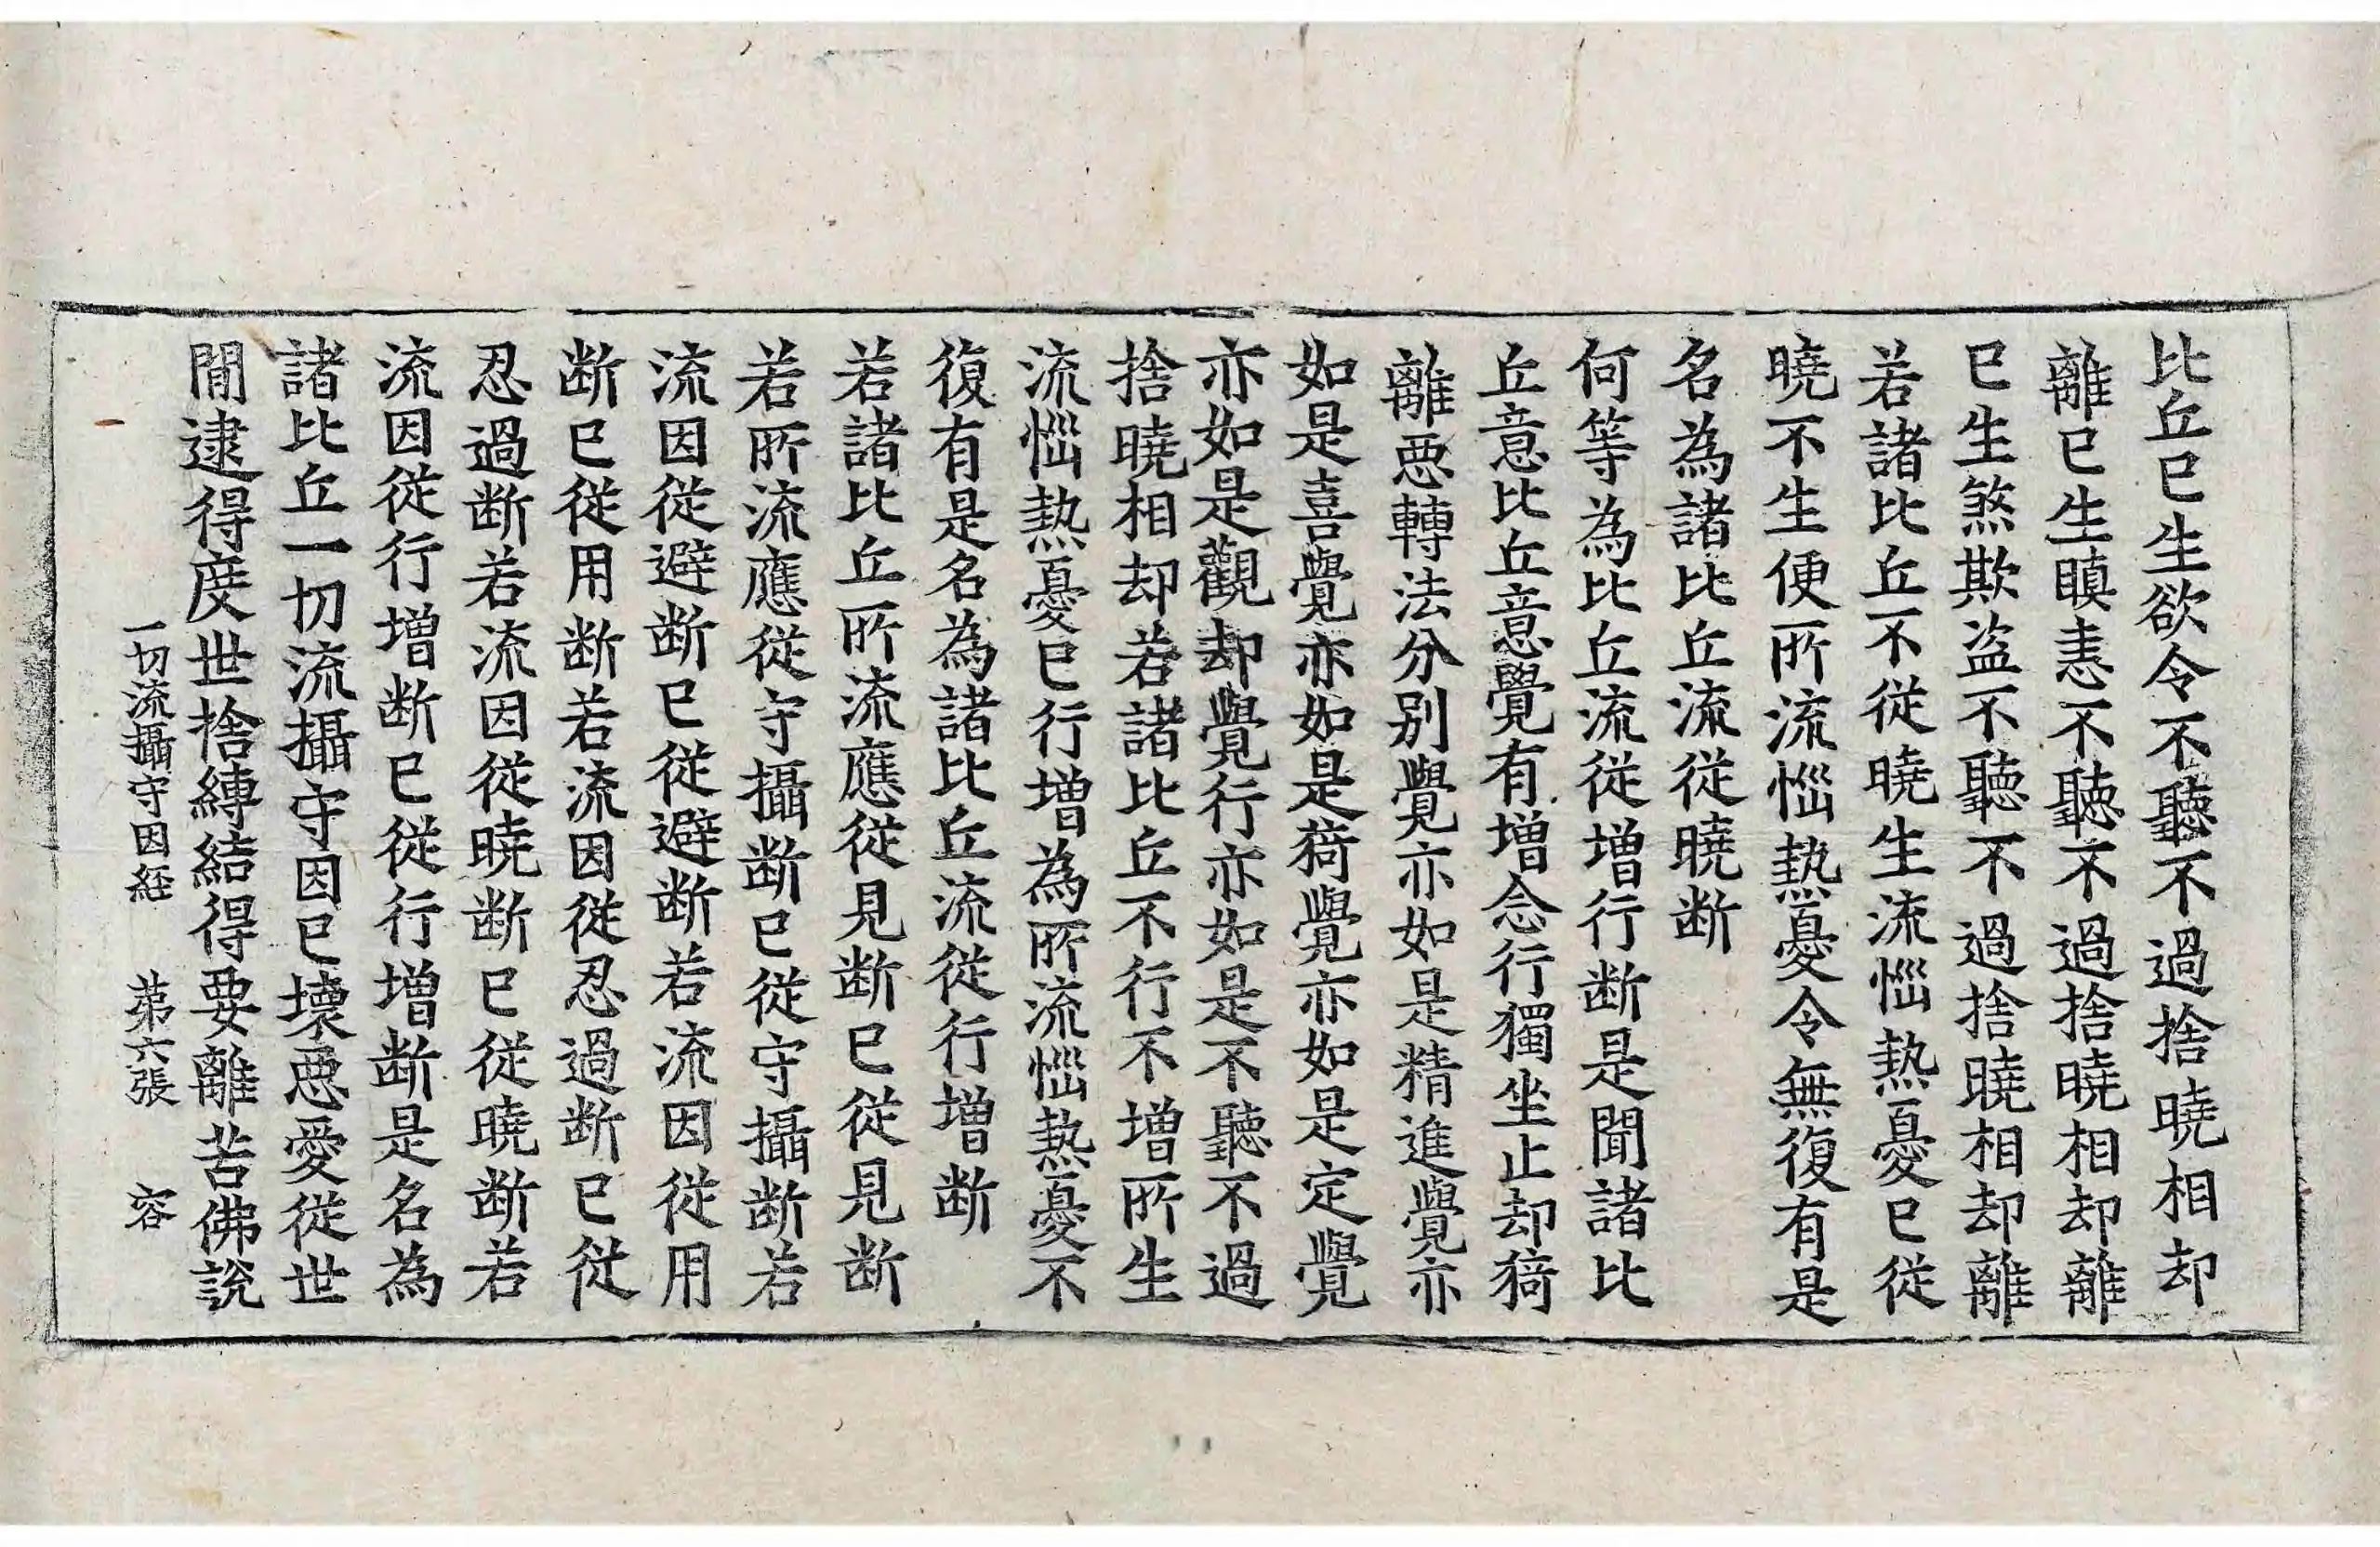 比丘已生欲令不聽不過捨曉相却
離已生瞋恚不聽不過捨曉相却離
已生煞欺盗不聽不過捨曉相却離
若諸比丘不從曉生流惱熱憂已從
曉不生便所流惱熱憂令無復有是
名為諸比丘流從曉断
何等為比丘流從增行断是聞諸比
丘意比丘意覺有增念行獨坐止却猗
離惡轉法分别覺亦如是精進覺亦
如是喜覺亦如是猗覺亦如是定覺
亦如是觀却覺行亦如是不聽不過
捨曉相却若諸比丘不行不增所生
流惱熱憂已行增為所流惱熱憂不
復有是名為諸比丘流從行增断
若諸比丘所流應從見断已從見断
若所流應從守攝断已從守攝断若
流因從避断已從避断若流因從用
断已從用断若流因從忍過断已從
忍過断若流因從曉断已從曉断若
流因從行增断已從行增断是名為
諸比丘一切流攝守因已壞惡愛從世
間逮得度世捨縛結得要離苦佛說
一切流攝守因経　苐六張　容